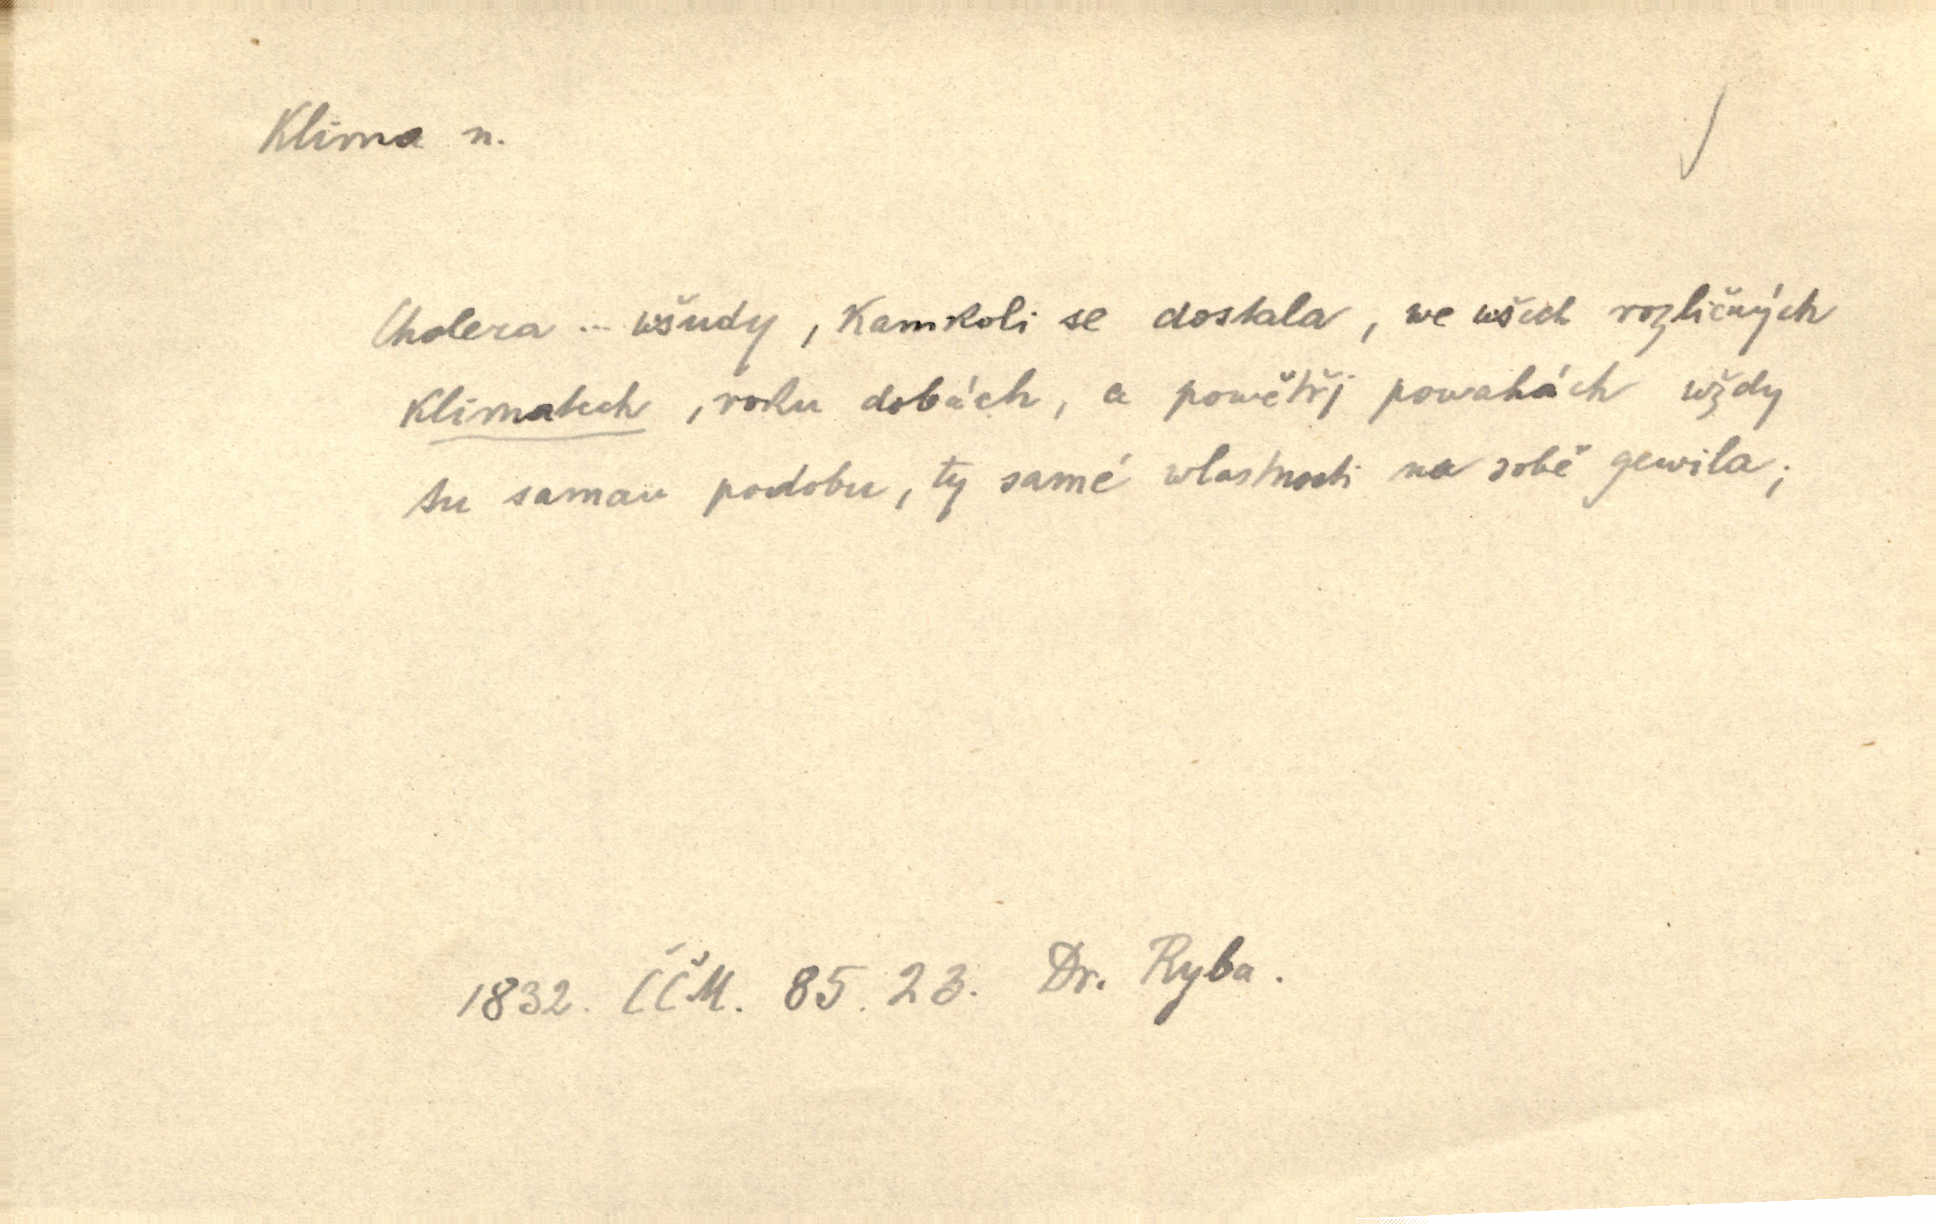 Klima n.
Cholera ... wšudy, kamkoli se dostala, we wšech rozličných
klimatech, roku dobách, a powětřj powahách wždy
tu samau podobu, ty samé wlastnosti na sobě gewila;
1832. ČČM. 85. 23. Dr. Ryba.